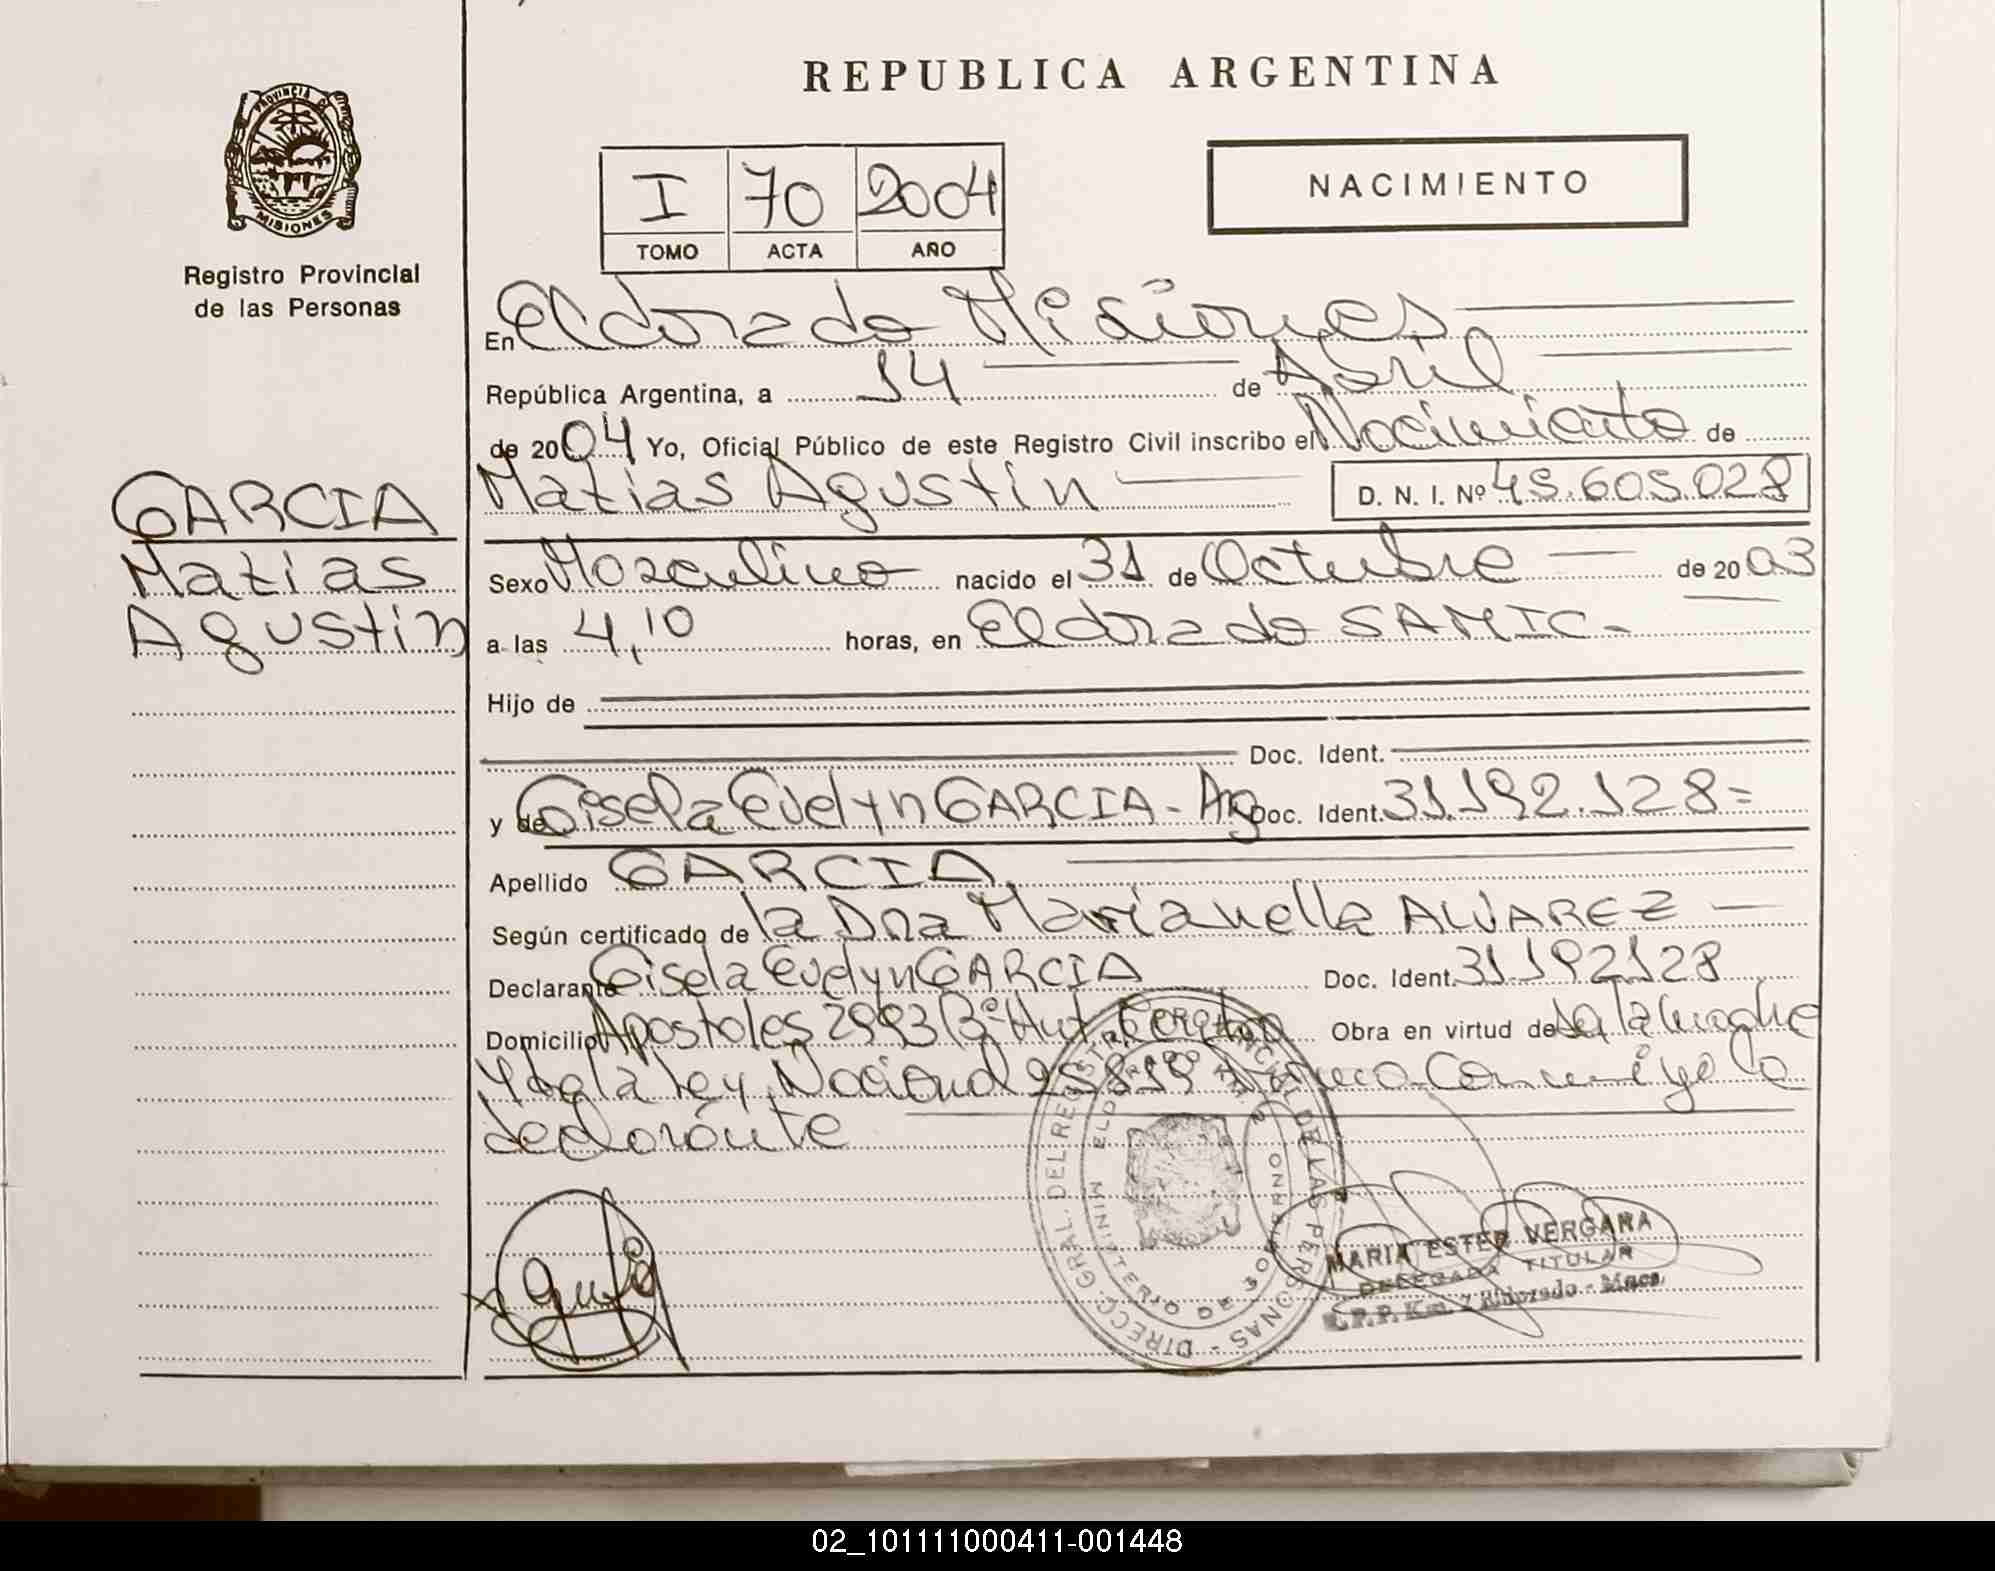 REPUBLICA ARGENTINA
PROVINCIA DE
MISIONES
Registro Provincial
de las Personas
I 70 2004
TOMO ACTA AÑO
NACIMIENTO
En Eldorado Misiones
República Argentina, a 14 de Abril
de 2004 Yo, Oficial Público de este Registro Civil inscribo el Nacimiento de
GARCIA
Matias
Agustin
Matias Agustin D. N. I. Nº 45.605.028
Sexo Masculino nacido el 31 de Octubre de 2003
a las 4,10 horas, en Eldorado SAMIC-
Hijo de
Doc. Ident.
y de Gisela Evelyn GARCIA - Arg Doc. Ident. 31.192.128=
Apellido GARCIA
Según certificado de la Dra Marianella ALVAREZ
Declarante Gisela Evelyn GARCIA Doc. Ident. 31192128
Domicilio Apostoles 2993 Bº Obra en virtud de de la Madre
y de la Ley Nacional Firma Conmigo la
declarante
DIRECC. GRAL. DEL REGISTRO PROVINCIAL DE LAS PERSONAS -
MINISTERIO DE GOBIERNO
MARIA ESTER VERGARA
DELEGADA TITULAR
R.P.P. Km. 2 Eldorado - Mnes.
02_101111000411-001448